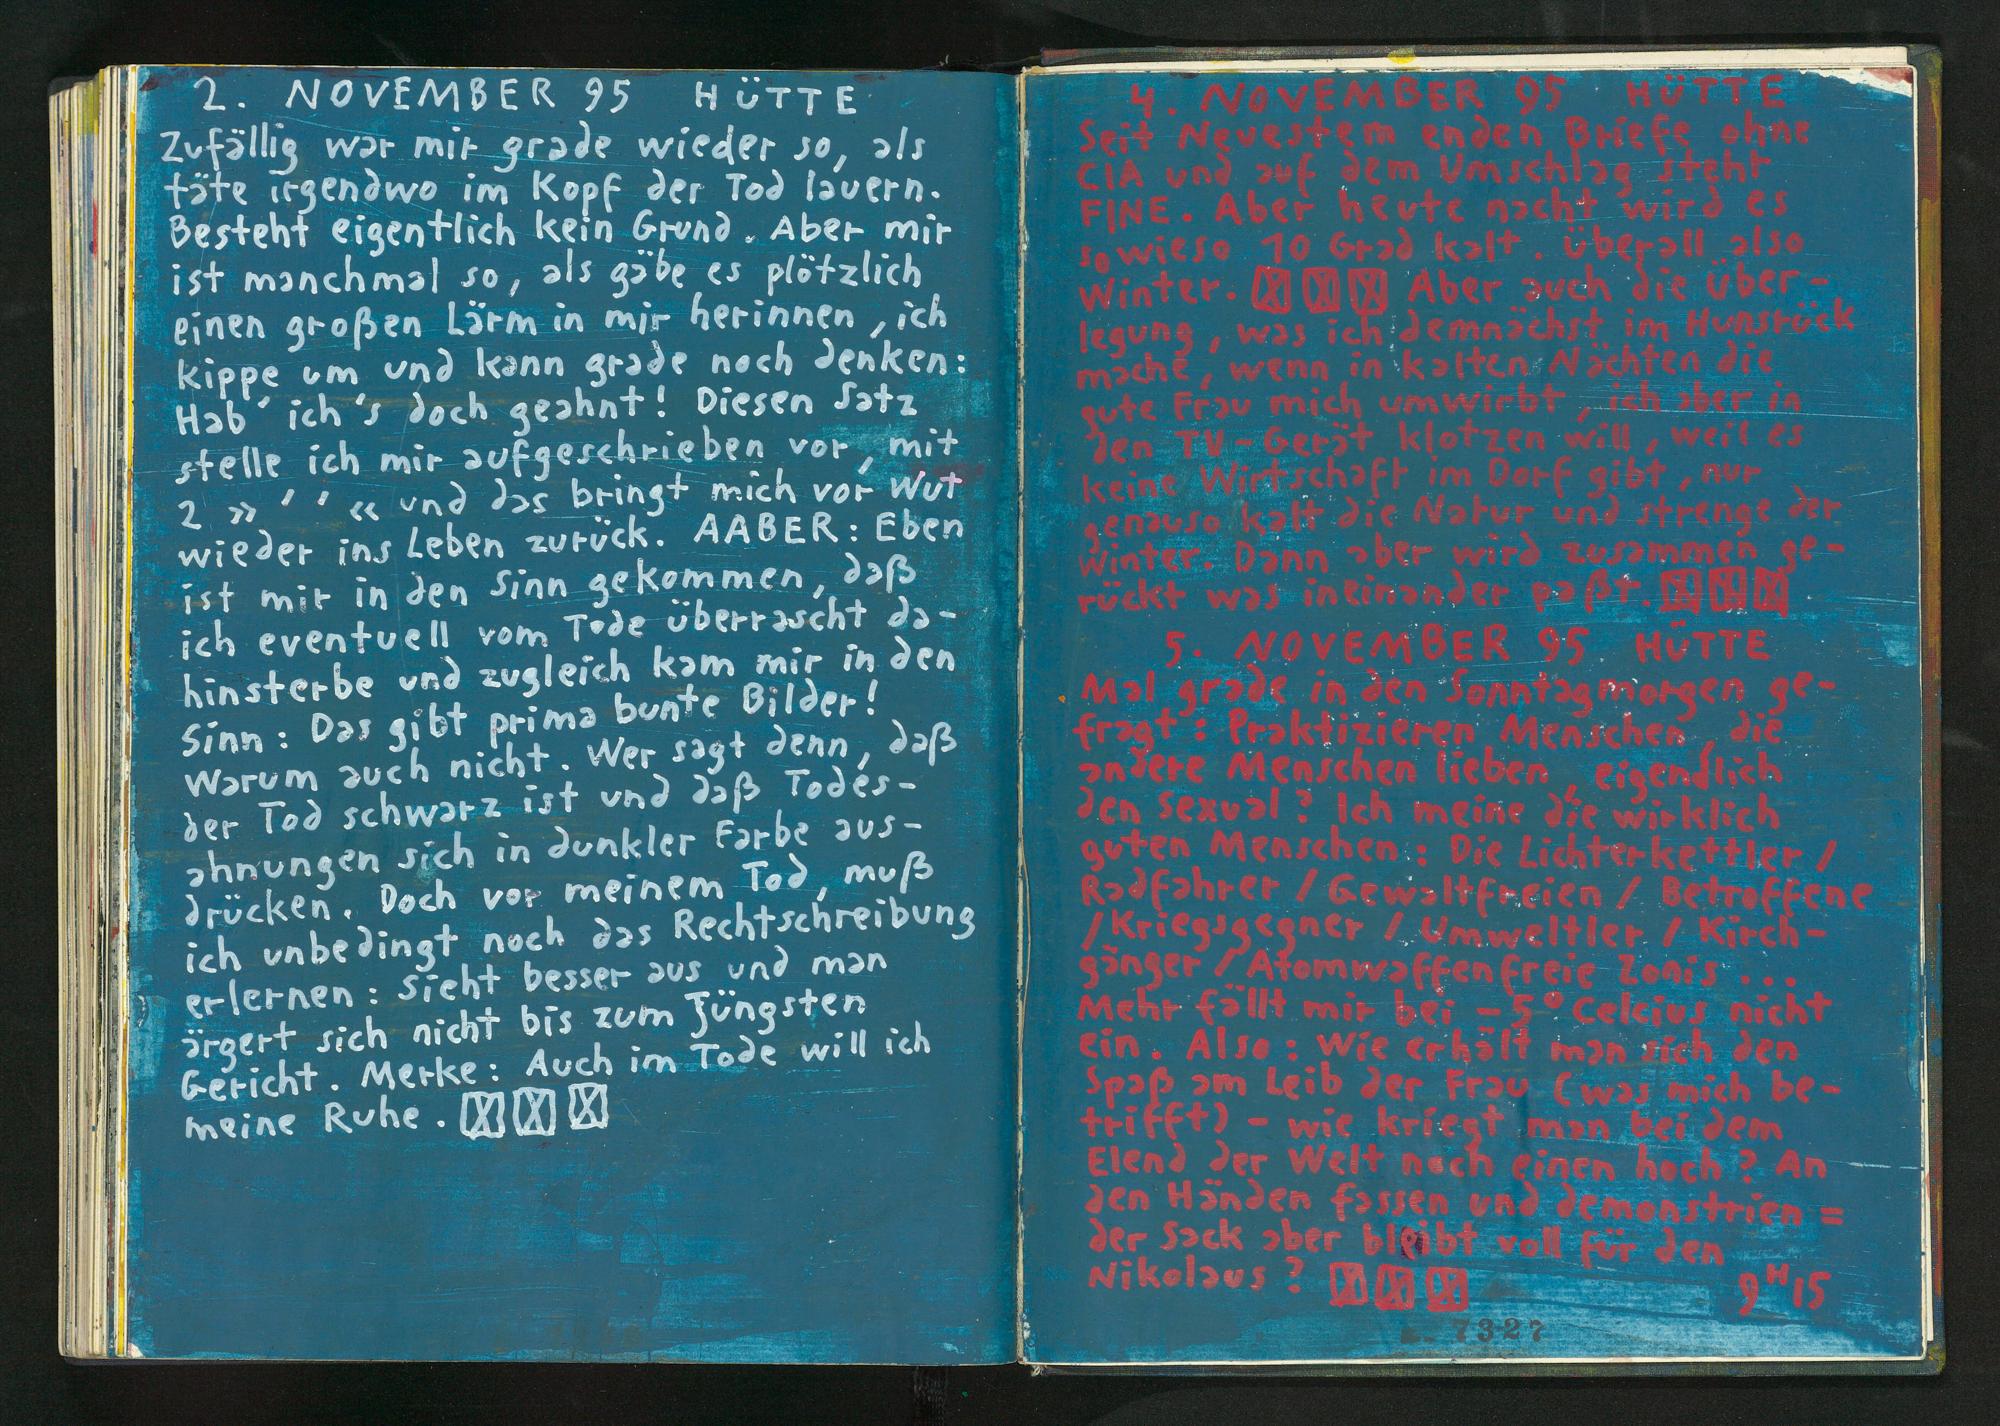 2. NOVEMBER 95 HÜTTE
Zufällig war mir grade wieder so, als
täte irgendwo im Kopf der Tod lauern.
Besteht eigentlich kein Grund. Aber mir
ist manchmal so, als gäbe es plötzlich
einen großen Lärm in mir herinnen, ich
kippe um und kann grade noch denken:
Hab' ich's doch geahnt! Diesen Satz
stelle ich mir aufgeschrieben vor, mit
2 » ' ' « und das bringt mich vor Wut
wieder ins Leben zurück. AABER: Eben
ist mir in den Sinn gekommen, daß
ich eventuell vom Tode überrascht da-
hinsterbe und zugleich kam mir in den
Sinn: Das gibt prima bunte Bilder!
Warum auch nicht. Wer sagt denn, daß
der Tod schwarz ist und daß Todes-
ahnungen sich in dunkler Farbe aus-
drücken. Doch vor meinem Tod, muß
ich unbedingt noch das Rechtschreibung
erlernen: Sieht besser aus und man
ärgert sich nicht bis zum Jüngsten
Gericht. Merke: Auch im Tode will ich
meine Ruhe. XXX
4. NOVEMBER 95 HÜTTE
Seit Neuestem enden Briefe ohne
CIA und auf dem Umschlag steht
FINE. Aber heute nacht wird es
sowieso 10 Grad kalt. Überall also
Winter. XXX Aber auch die Über-
legung, was ich demnächst im Hunsrück
mache, wenn in kalten Nächten die
gute Frau mich umwirbt, ich aber in
den TV-Gerät klotzen will, weil es
keine Wirtschaft im Dorf gibt, nur
genauso kalt die Natur und strenge der
Winter. Dann aber wird zusammen ge-
rückt was ineinander paßt. XXX
5. NOVEMBER 95 HÜTTE
Mal grade in den Sonntagmorgen ge-
fragt: Praktizieren Menschen, die
andere Menschen lieben, eigendlich
den Sexual? Ich meine die wirklich
guten Menschen: Die Lichterkettler /
Radfahrer / Gewaltfreien / Betroffene
/ Kriegsgegner / Umweltler / Kirch-
gänger / Atomwaffenfreie Zonis ...
Mehr fällt mir bei -5° Celcius nicht
ein. Also: Wie erhält man sich den
Spaß am Leib der Frau (was mich be-
trifft) - wie kriegt man bei dem
Elend der Welt noch einen hoch? An
den Händen fassen und demonstrien =
der Sack aber bleibt voll für den
Nikolaus? XXX 9H15
7327